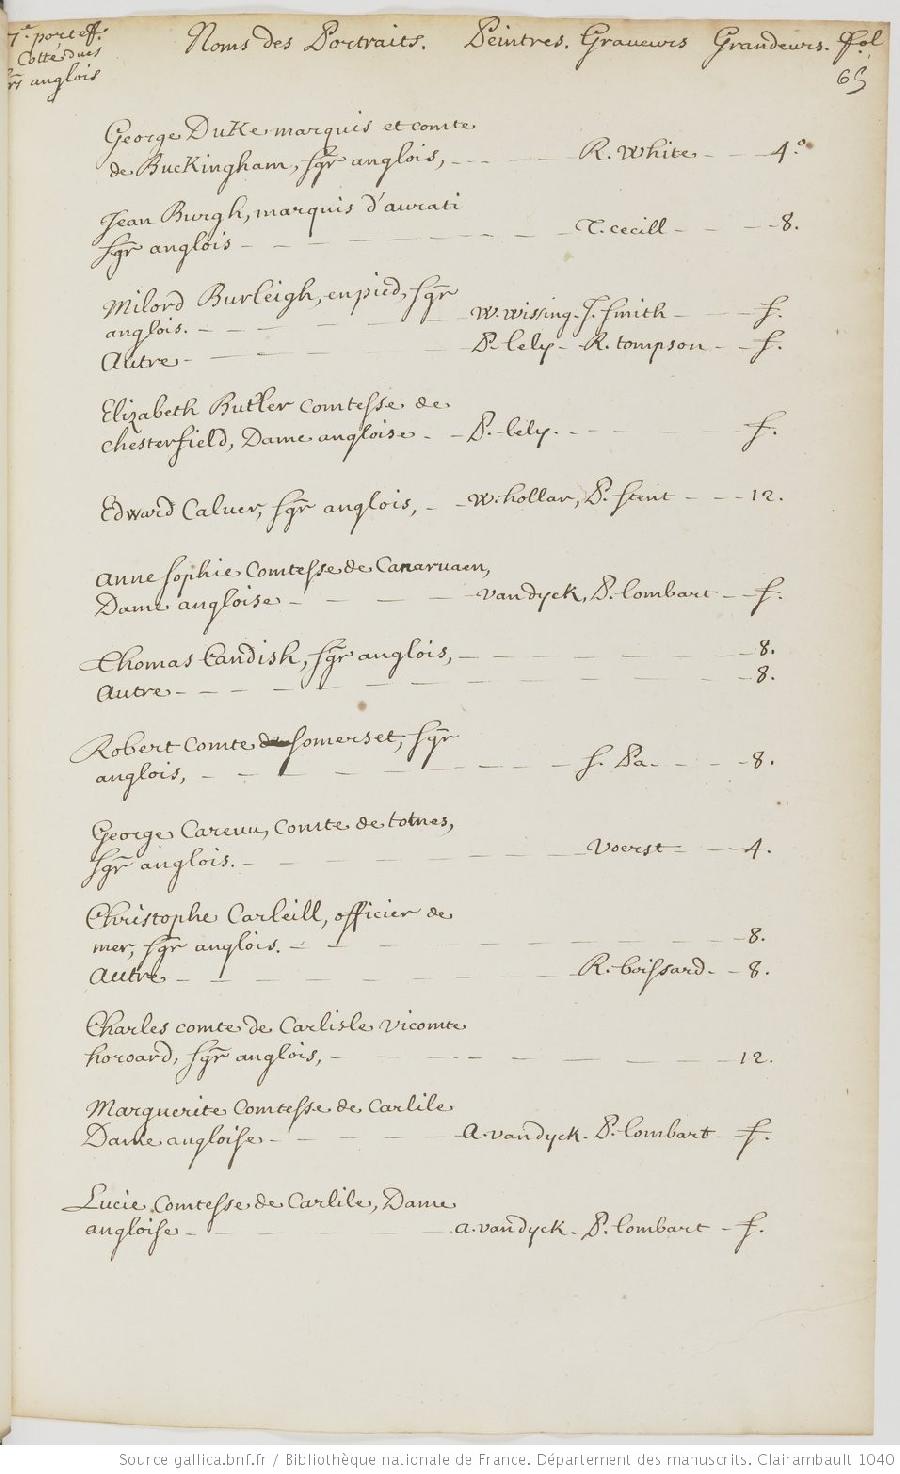 7.e porteff.
Cotté ducs
sgrs anglois
Noms des Portraits. Peintres. Graveurs Grandeurs. fol.
63
George Duke marquis et comte
de Buckingham, sgr anglois, - - - R. White - - 4.o
Jean Burgh, marquis d'aurati
sgr anglois - - - T. cecill - - - 8.
Milord Burleigh, en pied, sgr
anglois. - - - W. wissing - J. smith - - - f.
Autre - - - P. lely - R. tompson - - f.
Elizabeth Butler comtesse de
chesterfield, Dame angloise - - P. lely. - - - f.
Edward Caluer, sgr anglois, - - W. hollar, P. stent - - - 12.
anne sophie Comtesse de Canaruaen,
Dame angloise - - - vandyck, P. lombart - - f.
Thomas Candish, sgr anglois, - - - 8.
Autre - - - 8.
Robert comte de somerset, sgr
anglois, - - - S. Pa. - - - 8.
George Careuu, Comte de totnes,
sgr anglois. - - - Voerst - - 4.
Christophe Carleill, officier de
mer, sgr anglois. - - - 8.
Autre - - - R. boissard - - 8.
Charles comte de Carlisle vicomte
horoard, sgr anglois, - - - 12.
Marguerite Comtesse de Carlile
Dame angloise - - - A. vandyck - P. lombart - f.
Lucie Comtesse de Carlile, Dame
angloise - - - a. vandyck - P. lombart - f.
Source gallica.bnf.fr / Bibliothèque nationale de France. Département des manuscrits. Clairambault 1040